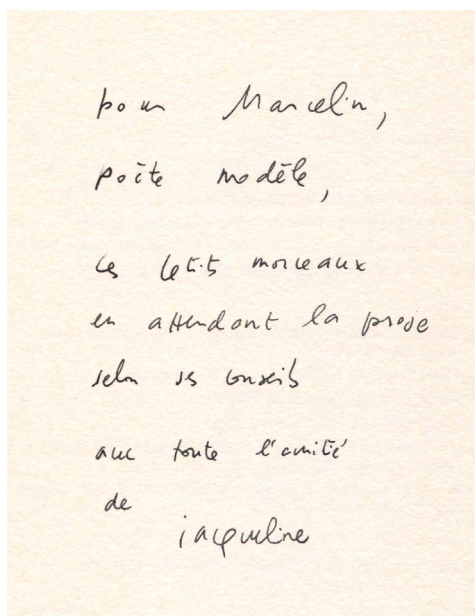 pour Marcelin,
poète modèle,
ces petits morceaux
en attendant la prose
selon ses conseils
avec toute l'amitié
de
jacqueline